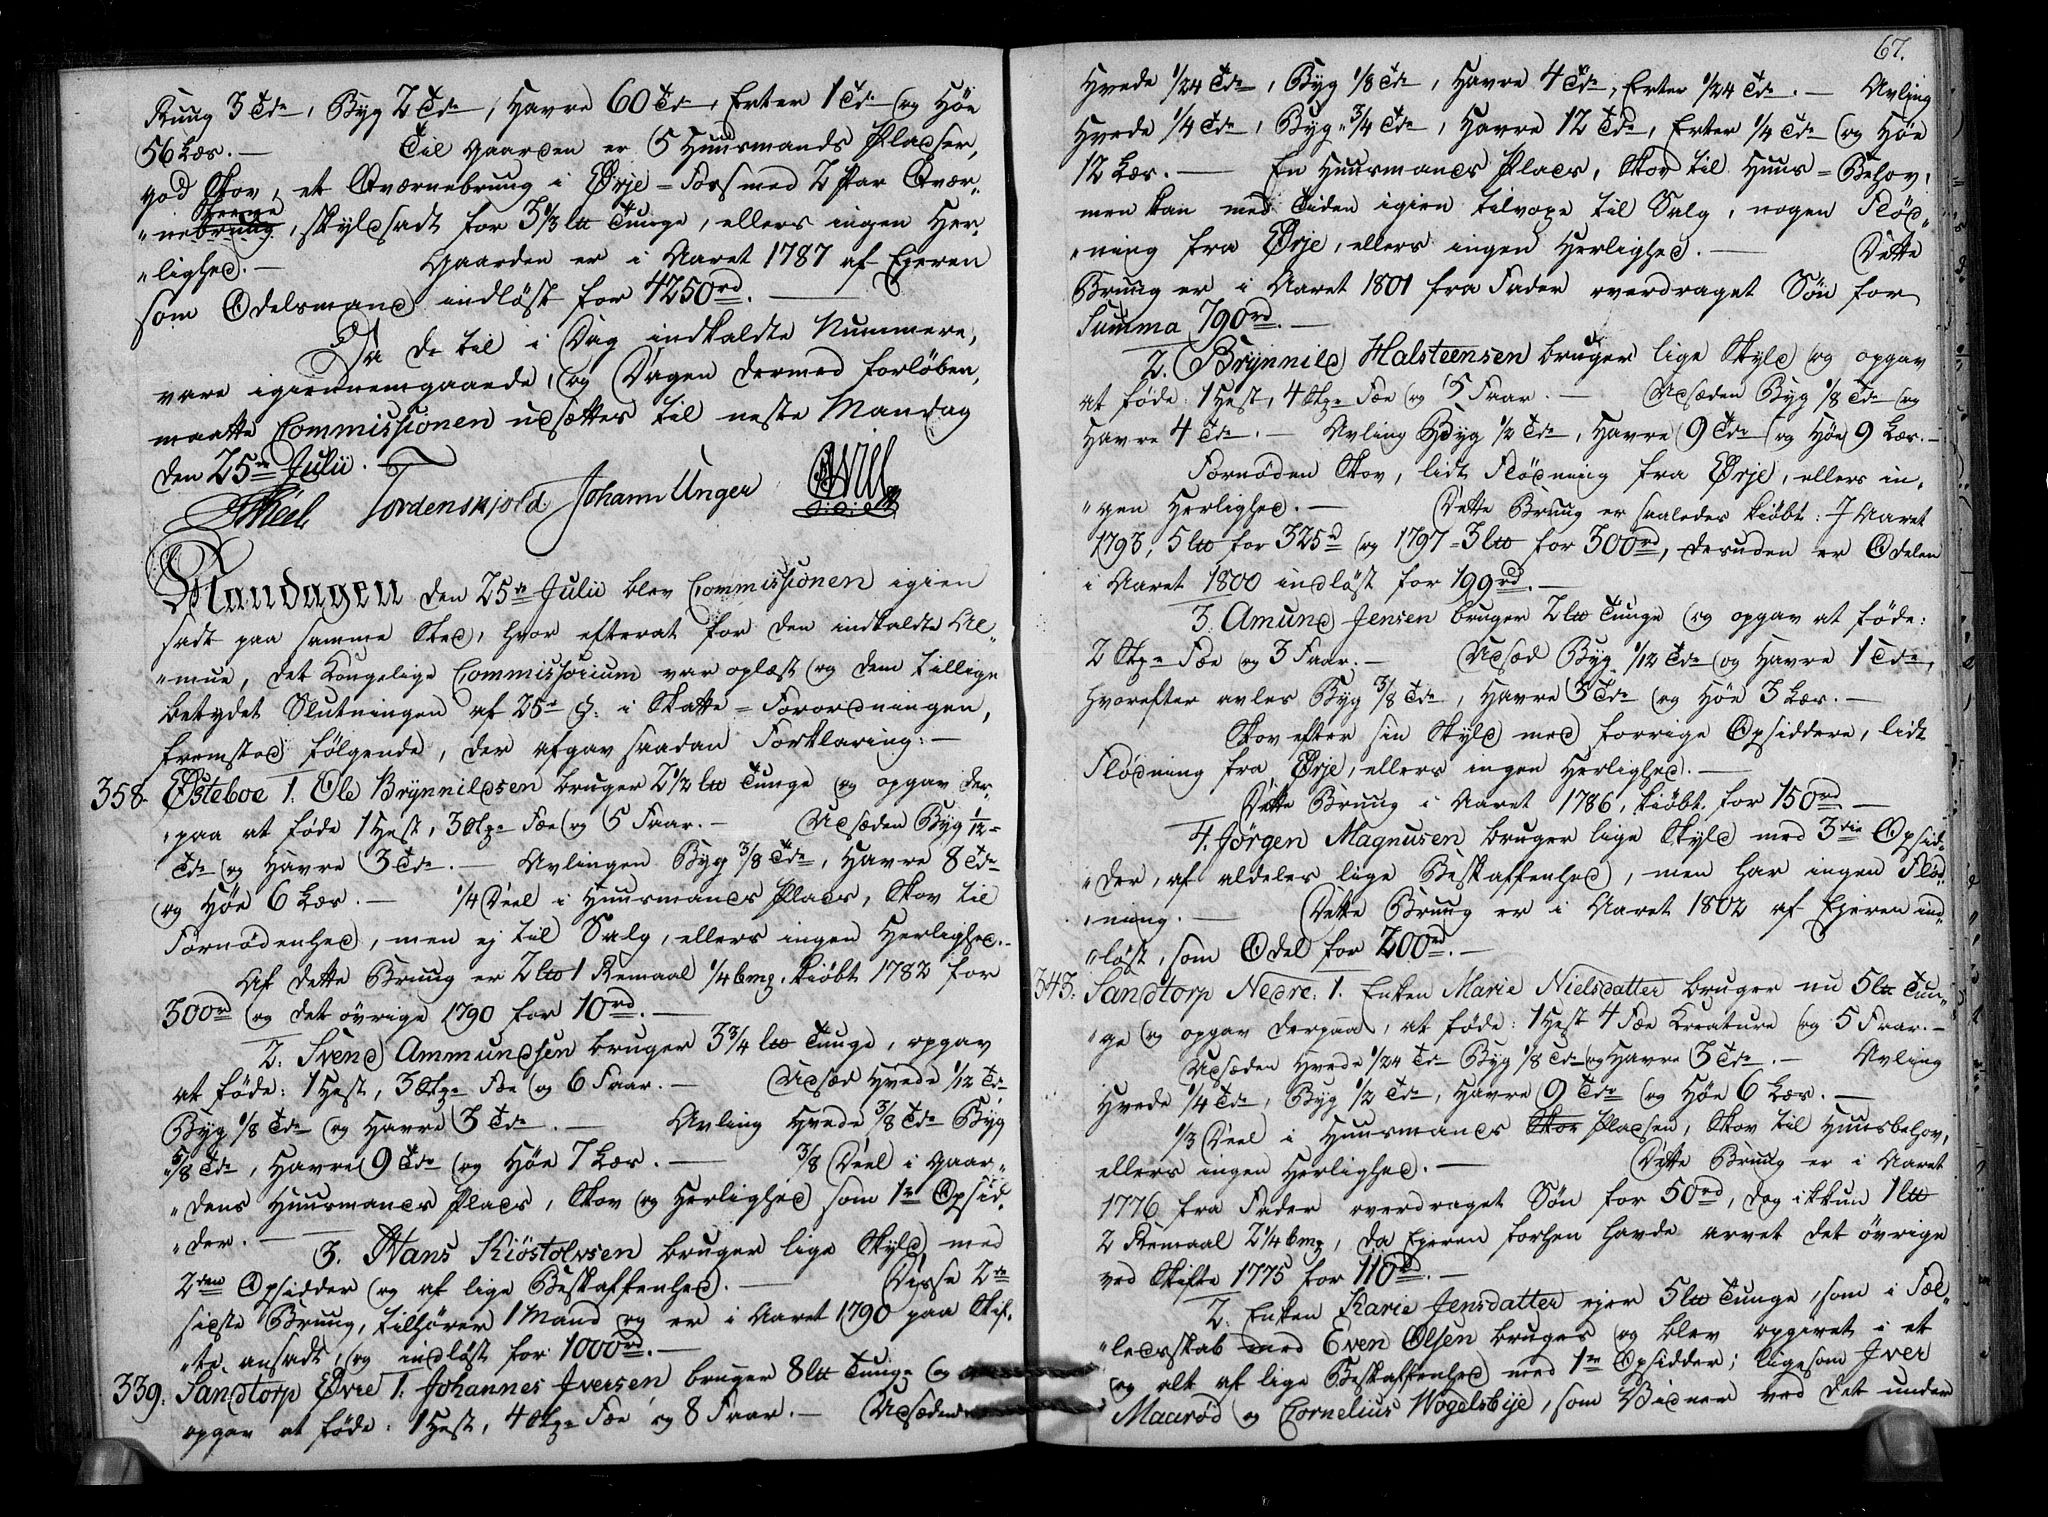 Ruug 3 Tdr, Byg 2 Tdr, Havre 60 Tdr, Erter 1 Tde og Höe
56 Læs. — Til Gaarden er 5 Huusmands Pladser,
god Skov, et Qværnebrug i Ørje-Foss med 2 Par Qvær-
"nebrug Steene, skyldsadt for 3 1/3 l℔ Tunge, ellers ingen Her-
"lighed. — Gaarden er i Aaret 1787 af Ejeren
som Odelsmand indlöst for 4250rd. —
Da de til i Dag indkaldte Nummere,
vare igiennemgaaede, og Dagen dermed forlöben,
maatte Commissionen udsættes til neste Mandag
den 25de Julii.
Tordenskjold Johann Unger
Mandagen den 25de Julii blev Commissionen igien
sadt paa samme Sted, hvor efterat for den indkaldte Al-
"mue, det Kongelige Commissorium var oplæst og dem tillige
betydet Slutningen af 25de §. i Skatte-Forordningen,
fremstod fölgende, der afgav saadan Forklaring: —
358. Østeboe 1. Ole Brynnildsen bruger 2 1/2 l℔ Tunge og opgav der-
"paa at föde 1 Hest, 3 Stkr Fæe og 5 Faar. — Udsæden Byg 1/12
Tde og Havre 3 Tdr. — Avlingen Byg 3/8 Tde, Havre 8 Tdr
og Höe 6 Læs. — 1/4 Deel i Huusmands Plads, Skov til
Fornödenhed, men ej til Salg, ellers ingen Herlighed. —
Af dette Bruug er 2 l℔ 1 Remaal 1/4 bmz. kiöbt 1782 for
300rd og det övrige 1790 for 10rd. —
2. Svend Ammundsen bruger 3 3/4 l℔ Tunge, opgav
at föde: 1 Hest, 3 Stkr Fæe og 6 Faar. — Udsæd Hvede 1/12 Tde
Byg 1/8 Tde og Havre 3 Tdr. — Avling Hvede 3/8 Tde Byg
5/8 Tde, Havre 9 Tdr og Höe 7 Læs. — 3/8 Deel i Gaar-
"dens Huusmands Plads, Skov og Herlighed som 1te Opsid-
"der. —
3. Hans Kiöstolvsen bruger lige Skyld med
2den Opsidder og af lige Beskaffenhed. — Disse 2de
sidste Bruug, tilhører 1 Mand og er i Aaret 1790 paa Skif-
"te, ansadt, og indlöst for 1000rd. —
339. Sandtorp Øvre 1. Johannes Iversen bruger 8 l℔ Tunge og
opgav at föde: 1 Hest, 4 Stkr Fæe og 8 Faar. — Udsæden
67.
Hvede 1/24 Tde, Byg 1/8 Tde, Havre 4 Tdr, Erter 1/24 Tde. — Avling
Hvede 1/4 Tde, Byg 3/4 Tde, Havre 12 Tdr, Erter 1/4 Tde og Höe
12 Læs. — En Huusmands Plads, Skov til Huus-Behov,
men kan med Tiden igien tilvoxe til Salg, nogen Flöd-
"ning fra Ørje, ellers ingen Herlighed. — Dette
Bruug er i Aaret 1801 fra Fader overdraget Sön for
Summa 790rd. —
2. Brynnild Halsteensen bruger lige Skyld og opgav
at föde: 1 Hest, 4 Stkr Fæe og 5 Faar. — Udsæden Byg 1/8 Tde og
Havre 4 Tdr. — Avling Byg 1/2 Tde, Havre 9 Tdr og Höe 9 Læs. —
Fornöden Skov, lidt Flödning fra Ørje, ellers in-
"gen Herlighed. — Dette Bruug er saaledes kiöbt: I Aaret
1793, 5 l℔ for 325rd og 1797 - 3 l℔ for 300rd, desuden er Odelen
i Aaret 1800 indlöst for 199rd. —
3. Amund Jensen bruger 2 l℔ Tunge og opgav at föde:
2 Stkr Fæe og 3 Faar. — Udsæd Byg 1/12 Tde og Havre 1 Tde,
hvorefter avles Byg 3/8 Tde, Havre 3 Tdr og Höe 3 Læs. —
Skov efter sin Skyld med forrige Opsiddere, lidt
Flödning fra Ørje, ellers ingen Herlighed. —
Dette Bruug i Aaret 1786, kiöbt for 150rd —
4. Jörgen Magnusen bruger lige Skyld med 3die Opsid-
"der, af aldeles lige Beskaffenhed, men har ingen Flöd-
"ning. — Dette Bruug er i Aaret 1802 af Ejeren ind-
"löst, som Odel for 200rd. —
343. Sandtorp Nedre. 1. Enken Marie Nielsdatter bruger nu 5 l℔ Tun-
"ge og opgav derpaa, at föde: 1 Hest 4 Fæe Kreature og 5 Faar. —
Udsæden Hvede 1/24 Tde Byg 1/8 Tde og Havre 3 Tdr. — Avling
Hvede 1/4 Tde, Byg 1/2 Tde, Havre 9 Tdr og Höe 6 Læs. —
1/3 Deel i Huusmands Skov Pladsen, Skov til Huusbehov,
ellers ingen Herlighed. — Dette Bruug er i Aaret
1776 fra Fader overdraget Sön for 50rd, dog ikkun 1 l℔
2 Remaal 2 1/4 bmz, da Ejeren forhen havde arvet det övrige
ved Skifte 1775 for 110rd. —
2. Enken Karie Jensdatter ejer 5 l℔ Tunge, som i Fæl-
"ledsskab med Even Olsen bruges og blev opgivet i et
og alt af lige Beskaffenhed med 1te Opsidder; ligesom Iver
Maaröd og Cornelius Wogelsbye, som Vidner ved det under